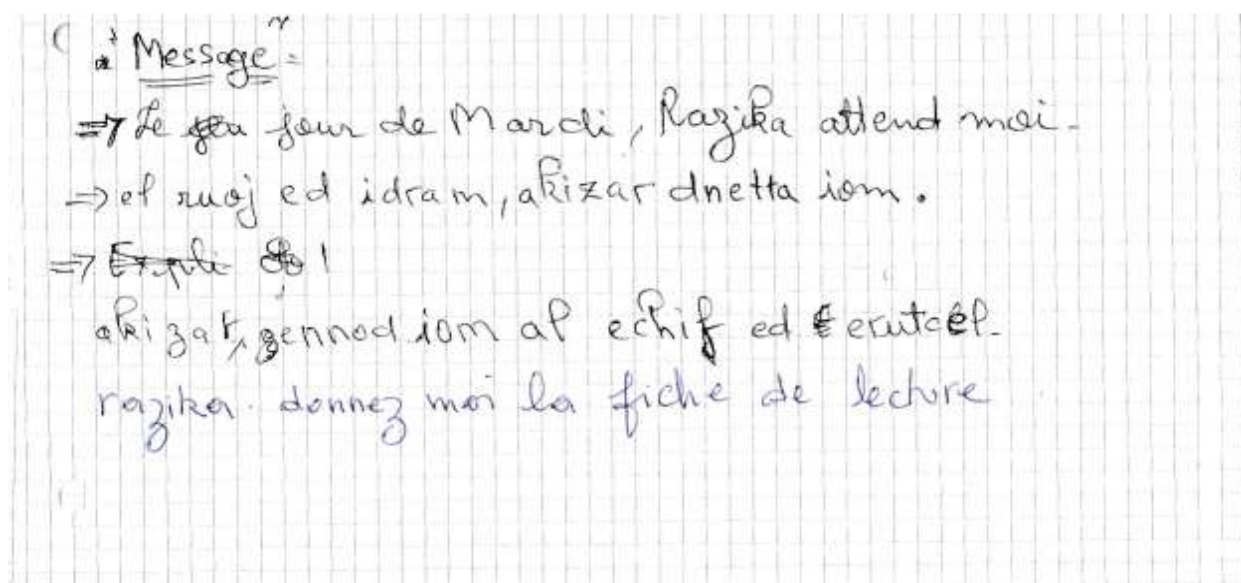 "Message"
⇒ Le jour de Mardi, Razika attend moi.
⇒ el ruoj ed idram, akizar dnetta iom.
⇒
akizar, zennod iom al echif ed erutcel.
razika. donnez moi la fiche de lecture